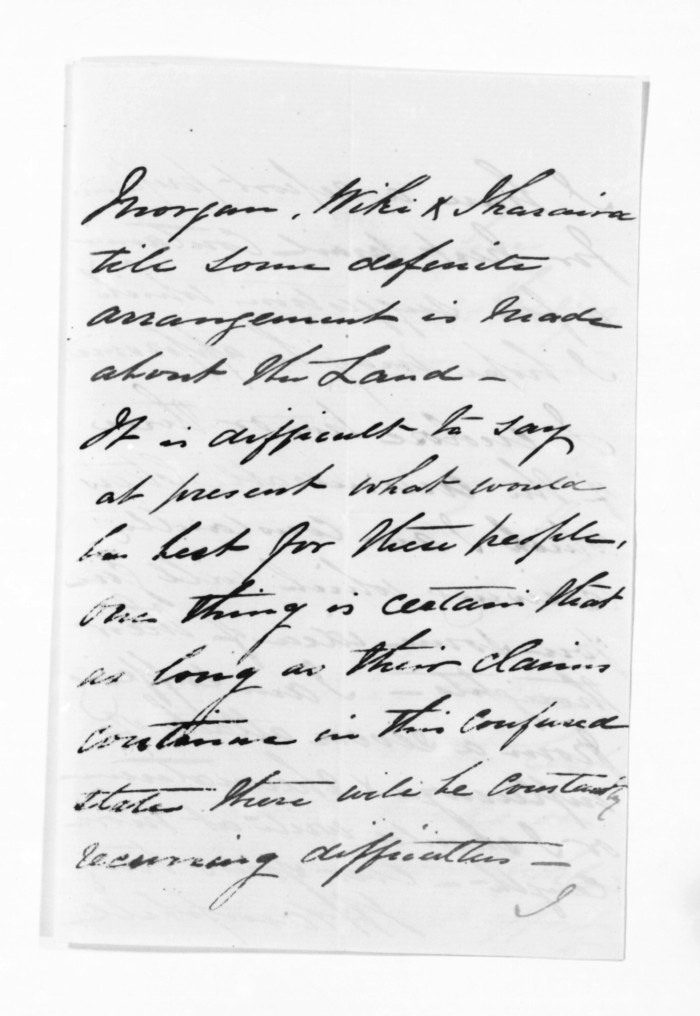 Morgan, Wiki & Tharaira
till some definite
arrangement is made
about the Land —
It is difficult to say
at present what would
be best for these people,
one thing is certain that
as long as their claims
continue in this confused
state there will be constantly
recurring difficulties —
I